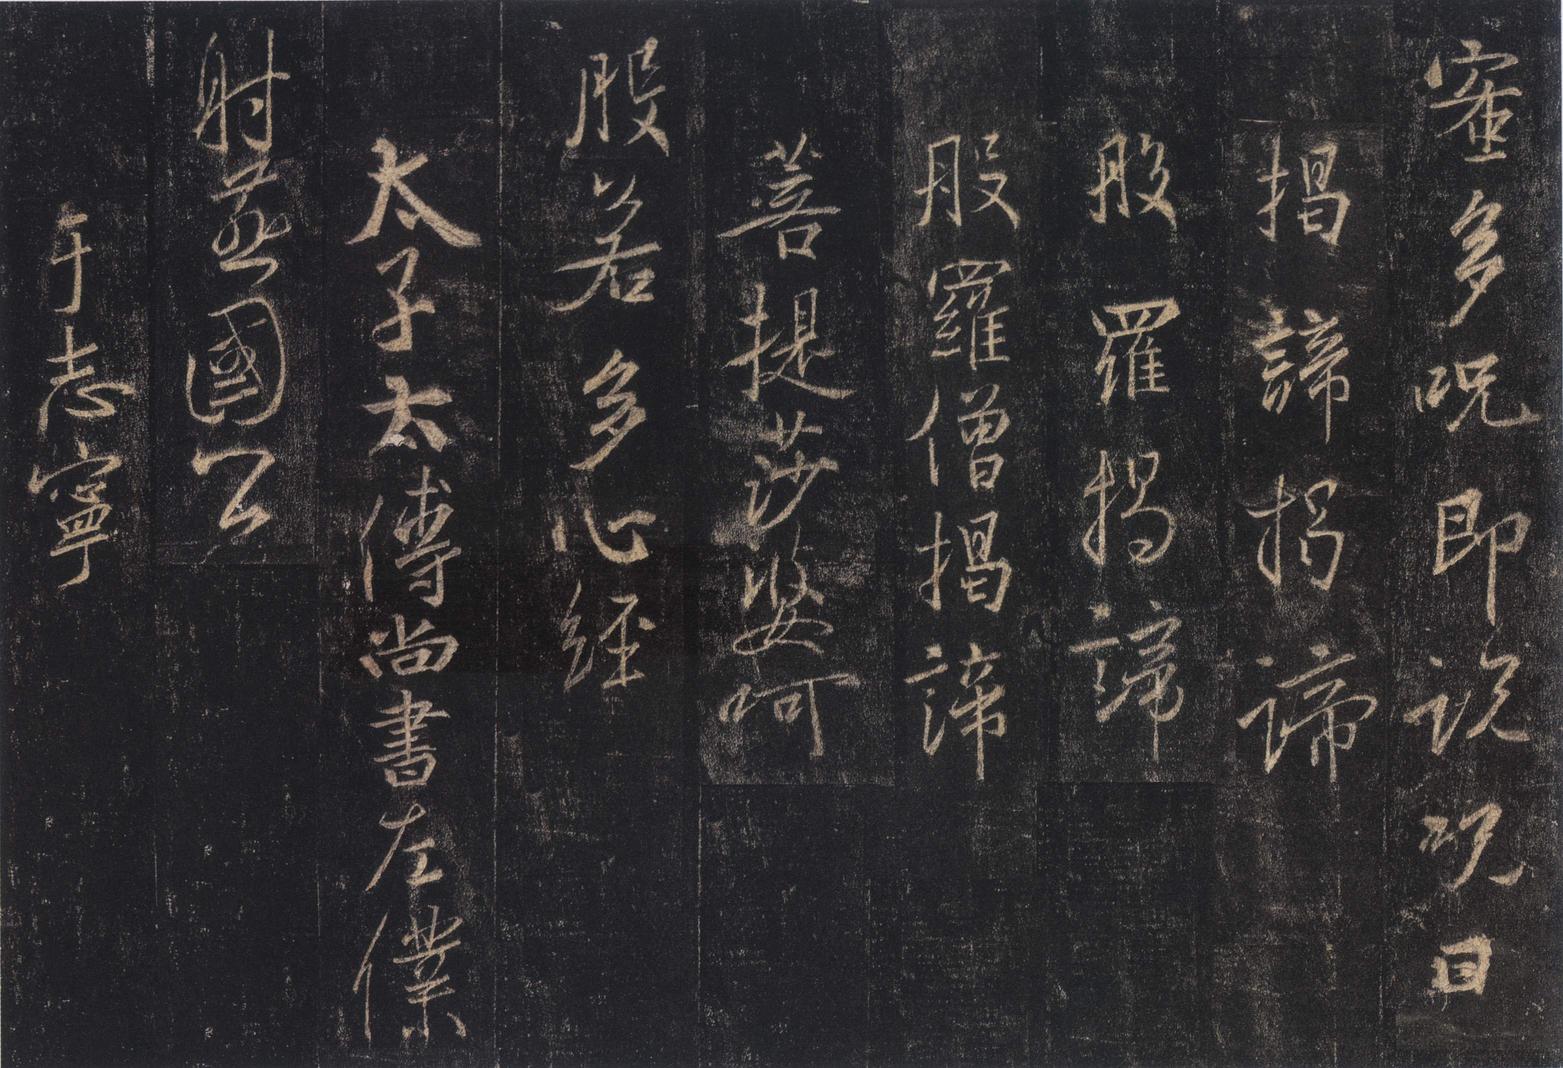 蜜多咒即說咒曰
揭諦揭諦
般羅揭諦
般羅僧揭諦
菩提莎婆呵
般若多心經
太子太傅尚書左僕
射燕國公
于志寧